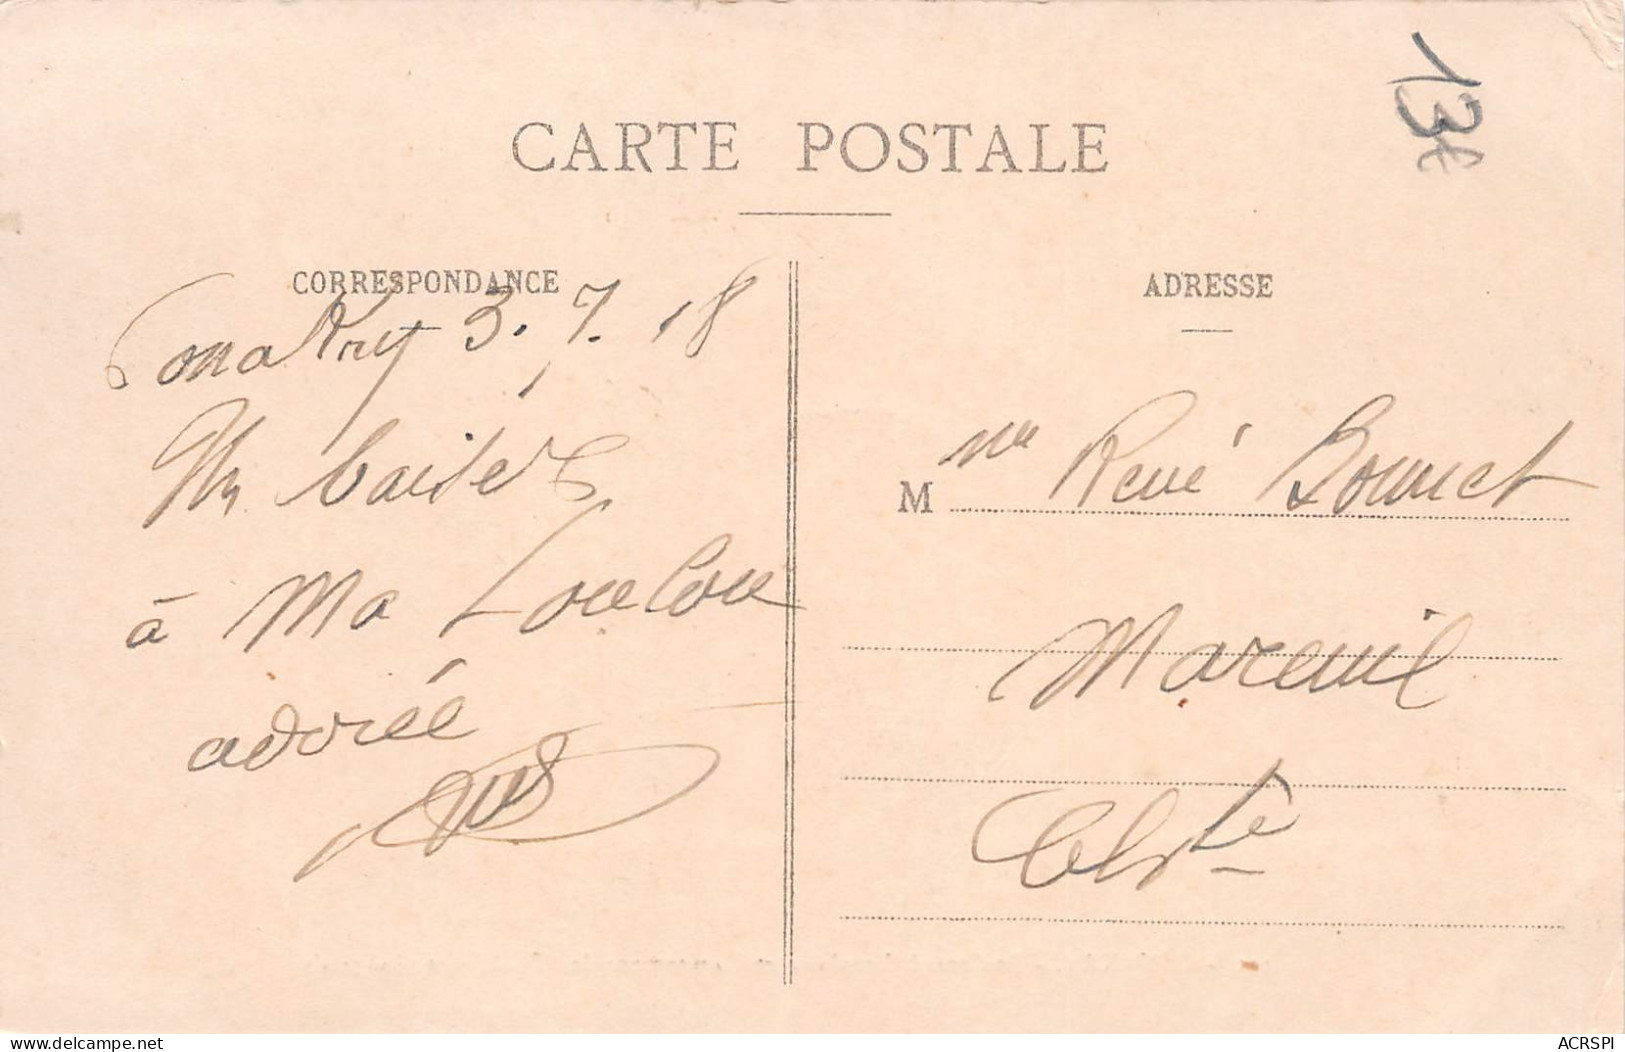 CARTE POSTALE
13€
CORRESPONDANCE
Conakry 3.7.18
Un baiser
à Ma Loulou
adorée
ADRESSE
M me René Bonnet
Mareuil
Chte
delcampe.net
ACRSPI